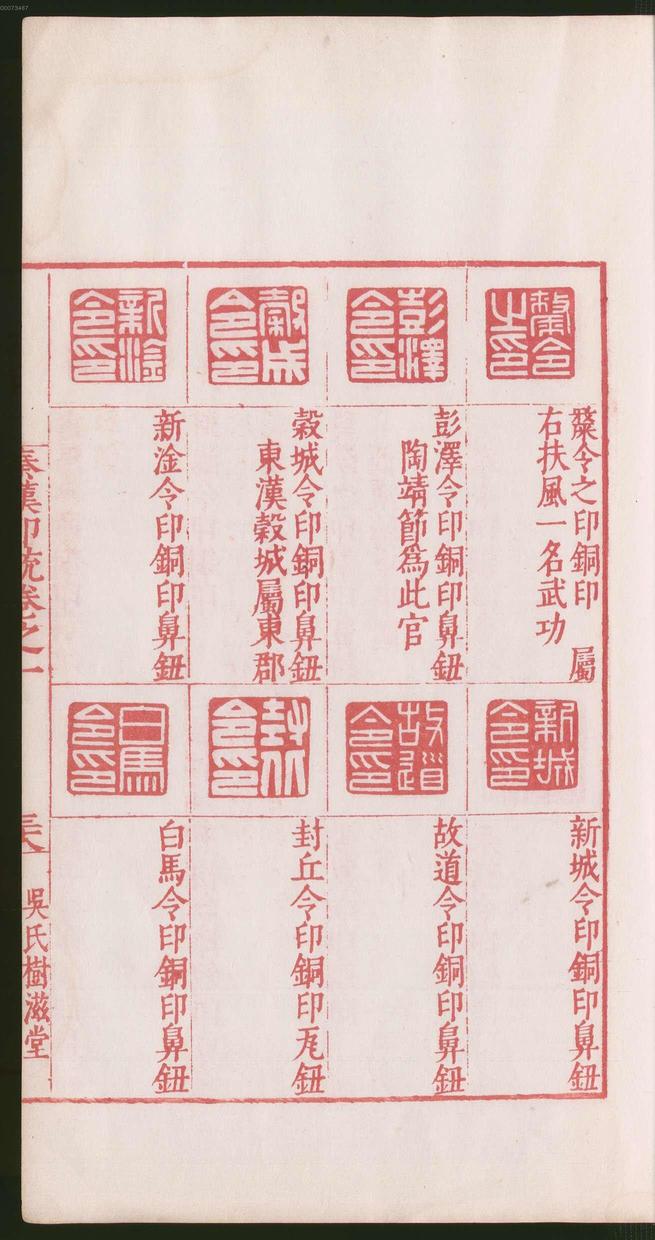 斄令之印
斄令之印銅印 屬
右扶風一名武功
彭澤令印
彭澤令印銅印鼻鈕
陶靖節為此官
穀成令印
穀城令印銅印鼻鈕
東漢穀城屬東郡
新淦令印
新淦令印銅印鼻鈕
新城令印
新城令印銅印鼻鈕
故道令印
故道令印銅印鼻鈕
封丘令印
封丘令印銅印瓦鈕
白馬令印
白馬令印銅印鼻鈕
秦漢印統卷之一
吳氏樹滋堂
00073467